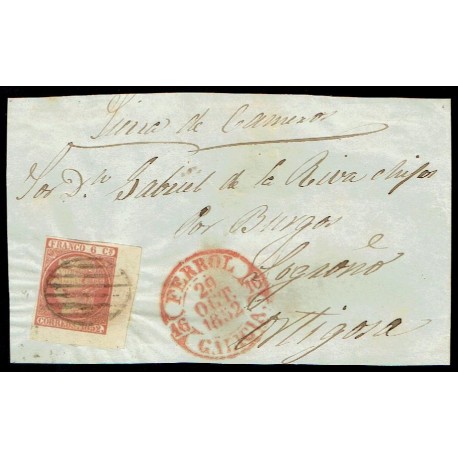 Sierra de Cameros
Sor Dn Gabriel de la Riva e hijos
por Burgos
Logroño
Ortigosa
FRANCO 6 Cs
CORREOS 1852
FERROL
29
OCT.
1852
16 16
GALICIA